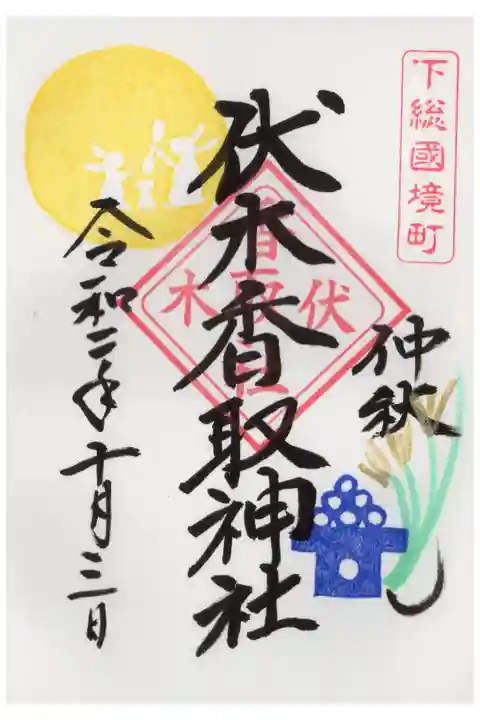 下総國境町
仲秋
伏木香取神社
伏木
香取
令和二年十月三日